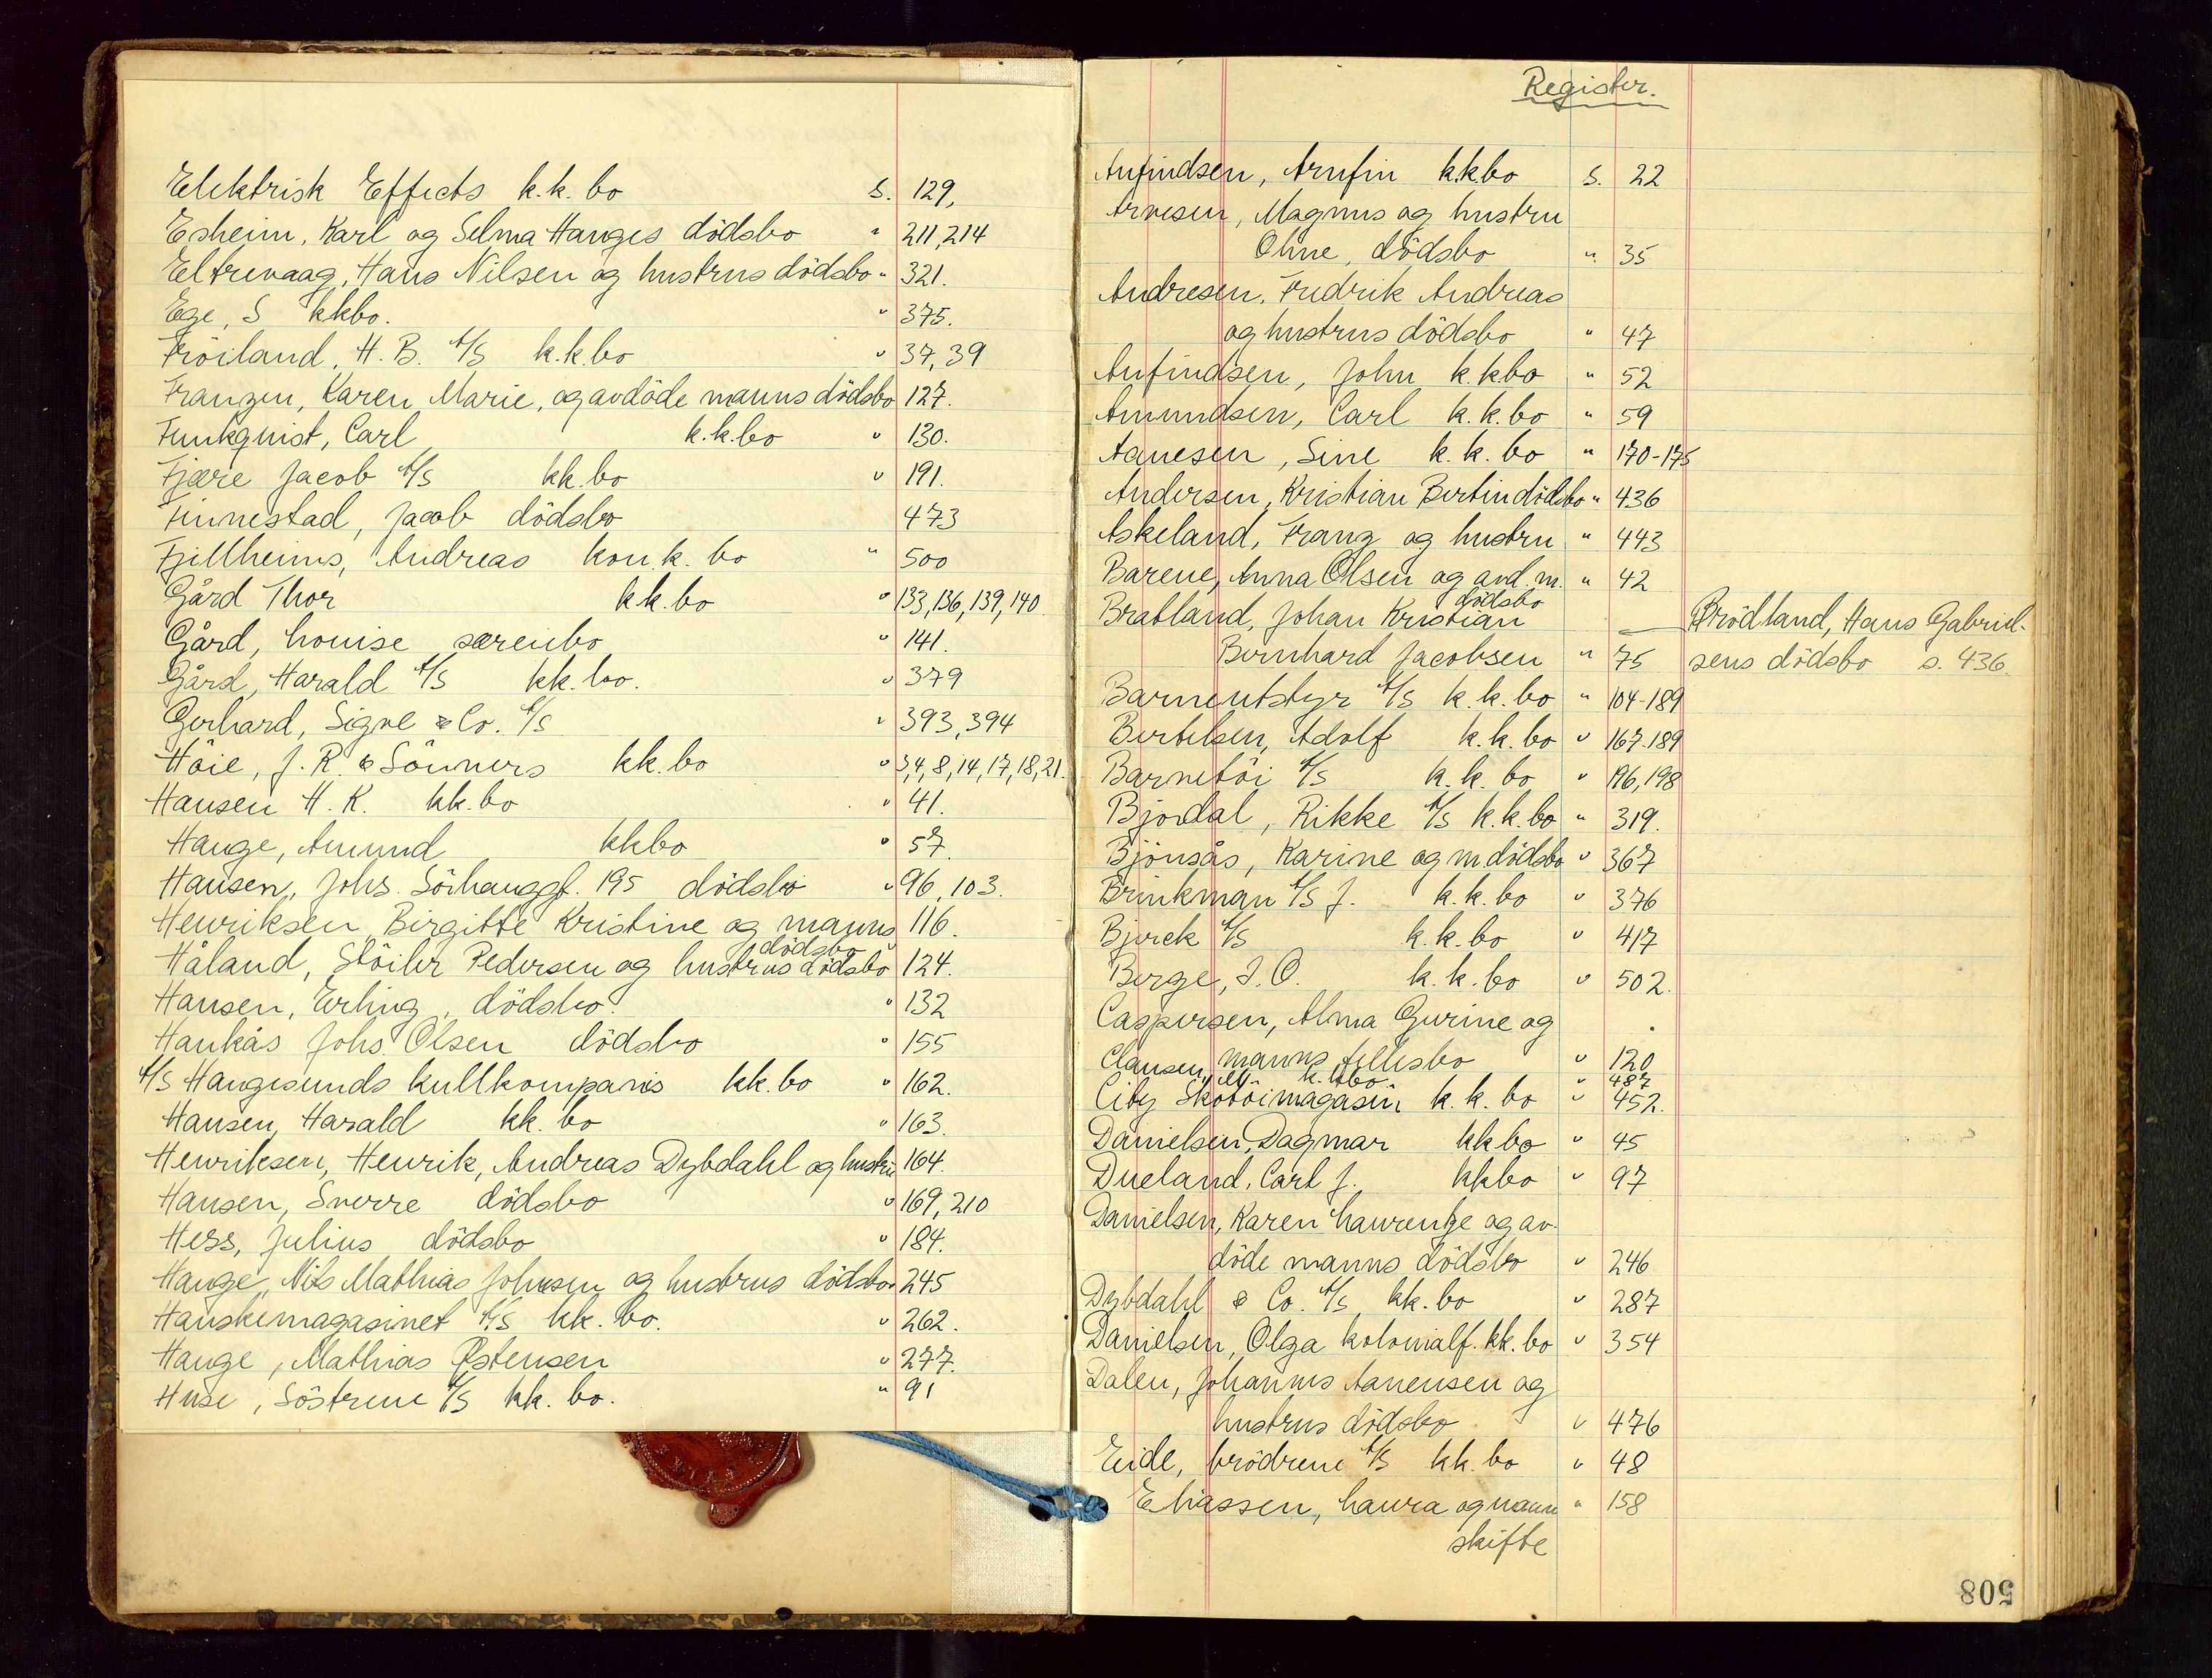 Elektrisk Effects k.k. bo s. 129,
Esheim, Karl og Selma Hauges dödsbo " 211, 214
Eltrevaag, Hans Nilsen og hustrus dödsbo " 321.
Ege, S kkbo. " 375.
Fröiland, H. B. A/S k.k. bo " 37, 39
Franzen, Karen Marie, og avdöde manns dödsbo 127.
Funkquist, Carl k.k. bo " 130.
Fjære Jacob A/S kk. bo " 191.
Finnestad, Jacob dödsbo 473
Fjellheims, Andreas kon.k. bo " 500
Gård Thor kk. bo " 133, 136, 139, 140.
Gård, Louise særeiebo " 141.
Gård, Harald A/S kk. bo. " 379
Gerhard, Signe & Co. A/S " 393, 394
Höie, J. R. & Sönners kk. bo " 3, 4, 8, 14, 17, 18, 21.
Hansen H. K. kk. bo " 41.
Hauge, Amund kkbo " 57.
Hansen, Johs. Sörhauggt. 195 dödsbo " 96, 103.
Henriksen, Birgitte Kristine og manns 116.
dödsbo
Håland, Stöiler Pedersen og hustrus dödsbo 124.
Hansen, Erling, dödsbo. " 132
Haukås Johs. Olsen dödsbo " 155
A/S Haugesunds kullkompanis kk. bo " 162.
Hansen, Harald kk. bo " 163.
Henriksen, Henrik, Andreas Dybdahl og hustru 164.
Hansen, Sverre dödsbo " 169, 210
Hess, Julius dödsbo " 184.
Hauge, Nils Mathias Johnsen og hustrus dödsbo " 245
Hanskemagasinet A/S kk. bo. " 262.
Hauge, Mathias Østensen " 277.
Huse, Söstrene A/S kk. bo. " 91
Register.
Anfindsen, Arnfin k.k.bo s. 22
Arnesen, Magnus og hustru
Oline, dödsbo " 35
Andresen, Fredrik Andreas
og hustrus dödsbo " 47
Anfindsen, John k.k.bo " 52
Amundsen, Carl k.k. bo " 59
Aanesen, Sine k.k. bo " 170-175
Andersen, Kristian Bertin dödsbo " 436
Askeland, Franz og hustru " 443
Barene, Anna Olsen og avd. m. " 42
dödsbo
Bratland, Johan Kristian
Bernhard Jacobsen " 75
Brödland, Hans Gabriel-
sens dödsbo s. 436.
Barneutstyr A/S k.k. bo " 104-189
Bertelsen, Adolf k.k. bo " 167-189
Barnetöi A/S k.k. bo " 196, 198
Bjordal, Rikke A/S k.k. bo " 319.
Bjönsås, Karine og m dödsbo " 367
Brinkman A/S J. k.k. bo " 376
Bjerck A/S k.k. bo " 417
Berge, J. O. k.k. bo " 502.
Caspersen, Alma Gurine og
manns fellesbo " 120
Clausen, k.kbo. " 487
City Skotöimagasin k.k. bo " 452.
Danielsen, Dagmar kkbo " 45
Dueland, Carl J. kkbo " 97
Danielsen, Karen Laurentze og av-
döde manns dödsbo " 246
Dybdahl & Co. A/S kk. bo " 287
Danielsen, Olga kolonialf. kk. bo " 354
Dalen, Johannes Aanensen og
hustrus dödsbo " 476
Eide, brödrene A/S kk. bo " 48
Eliassen, Laura og mann " 158
skifte
508